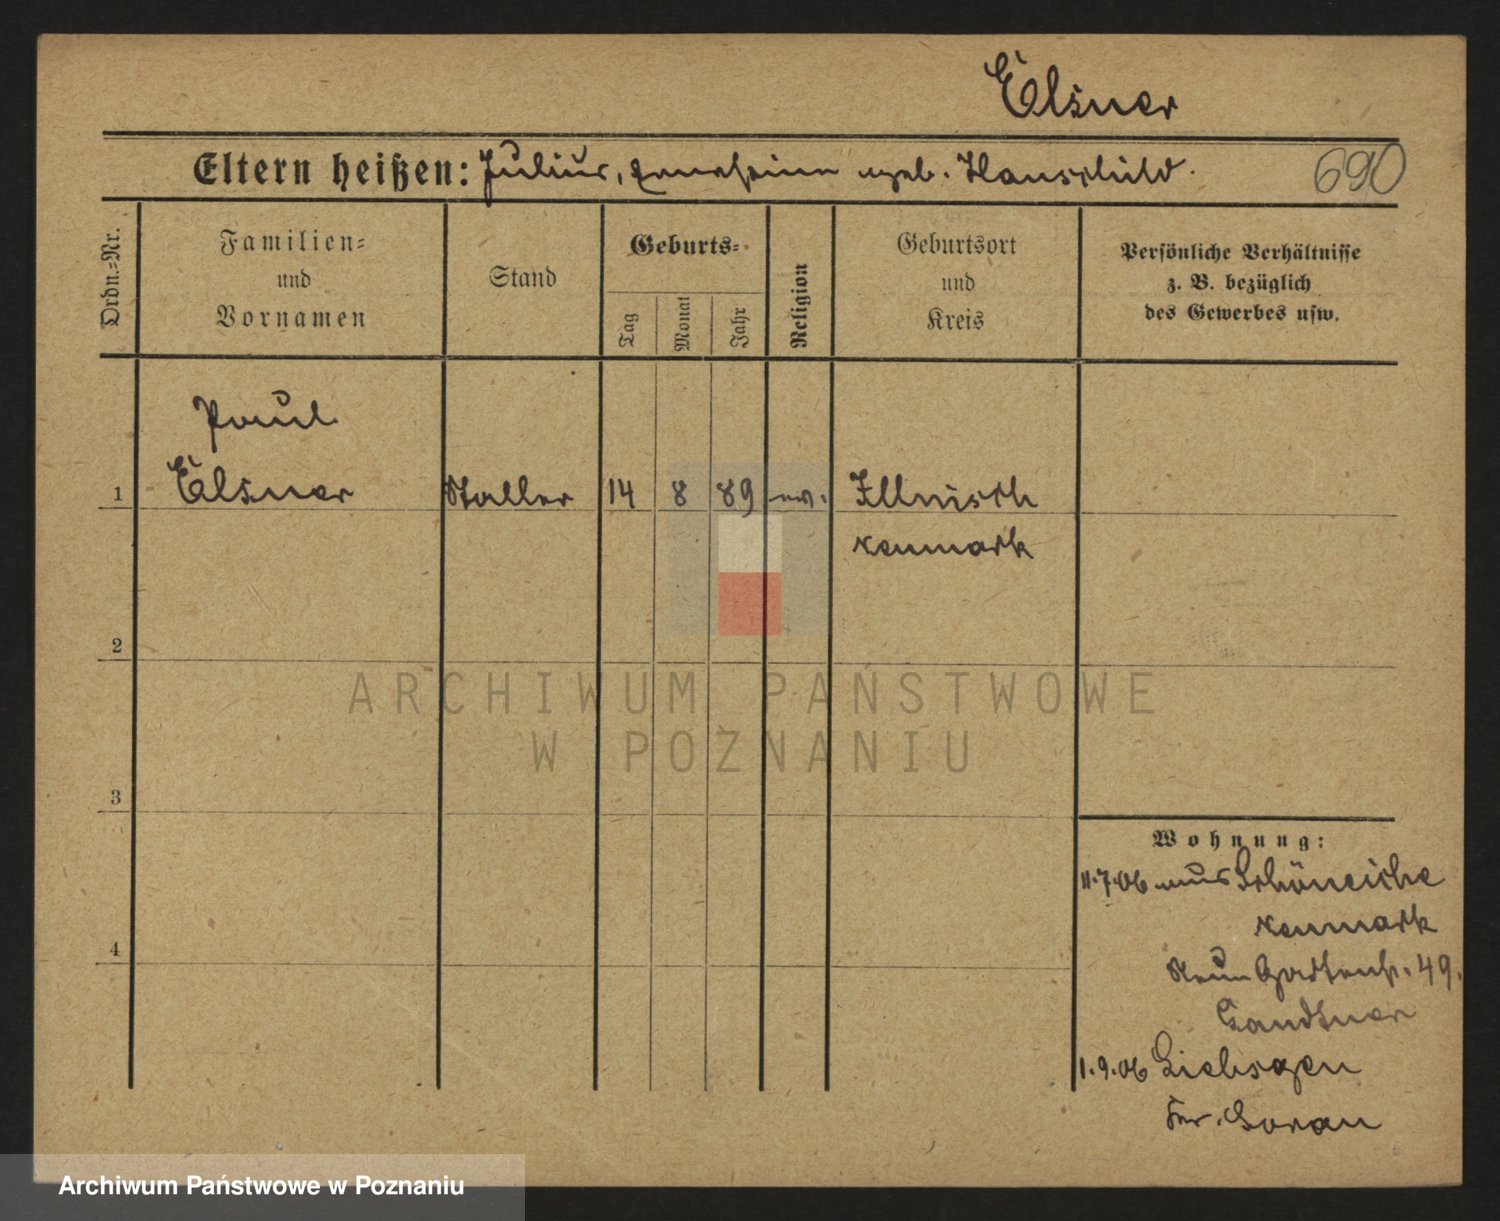 Elsner
Eltern heißen: Julius, Ernestine geb. Hauschild.
690
Ordn.=Nr.
Familien=
und
Vornamen
Stand
Geburts=
Tag
Monat
Jahr
Religion
Geburtsort
und
Kreis
Persönliche Verhältnisse
z. B. bezüglich
des Gewerbes usw.
Paul
1 Elsner 14 8 89 ev. Illnisch
Neumark
2
ARCHIWUM PAŃSTWOWE
W POZNANIU
3
Wohnung:
11.7.06 aus Schöneiche
Neumark
Neue Gartenstr. 49.
4
1.9.06 Liebsgen
Kr. Sorau
Archiwum Państwowe w Poznaniu